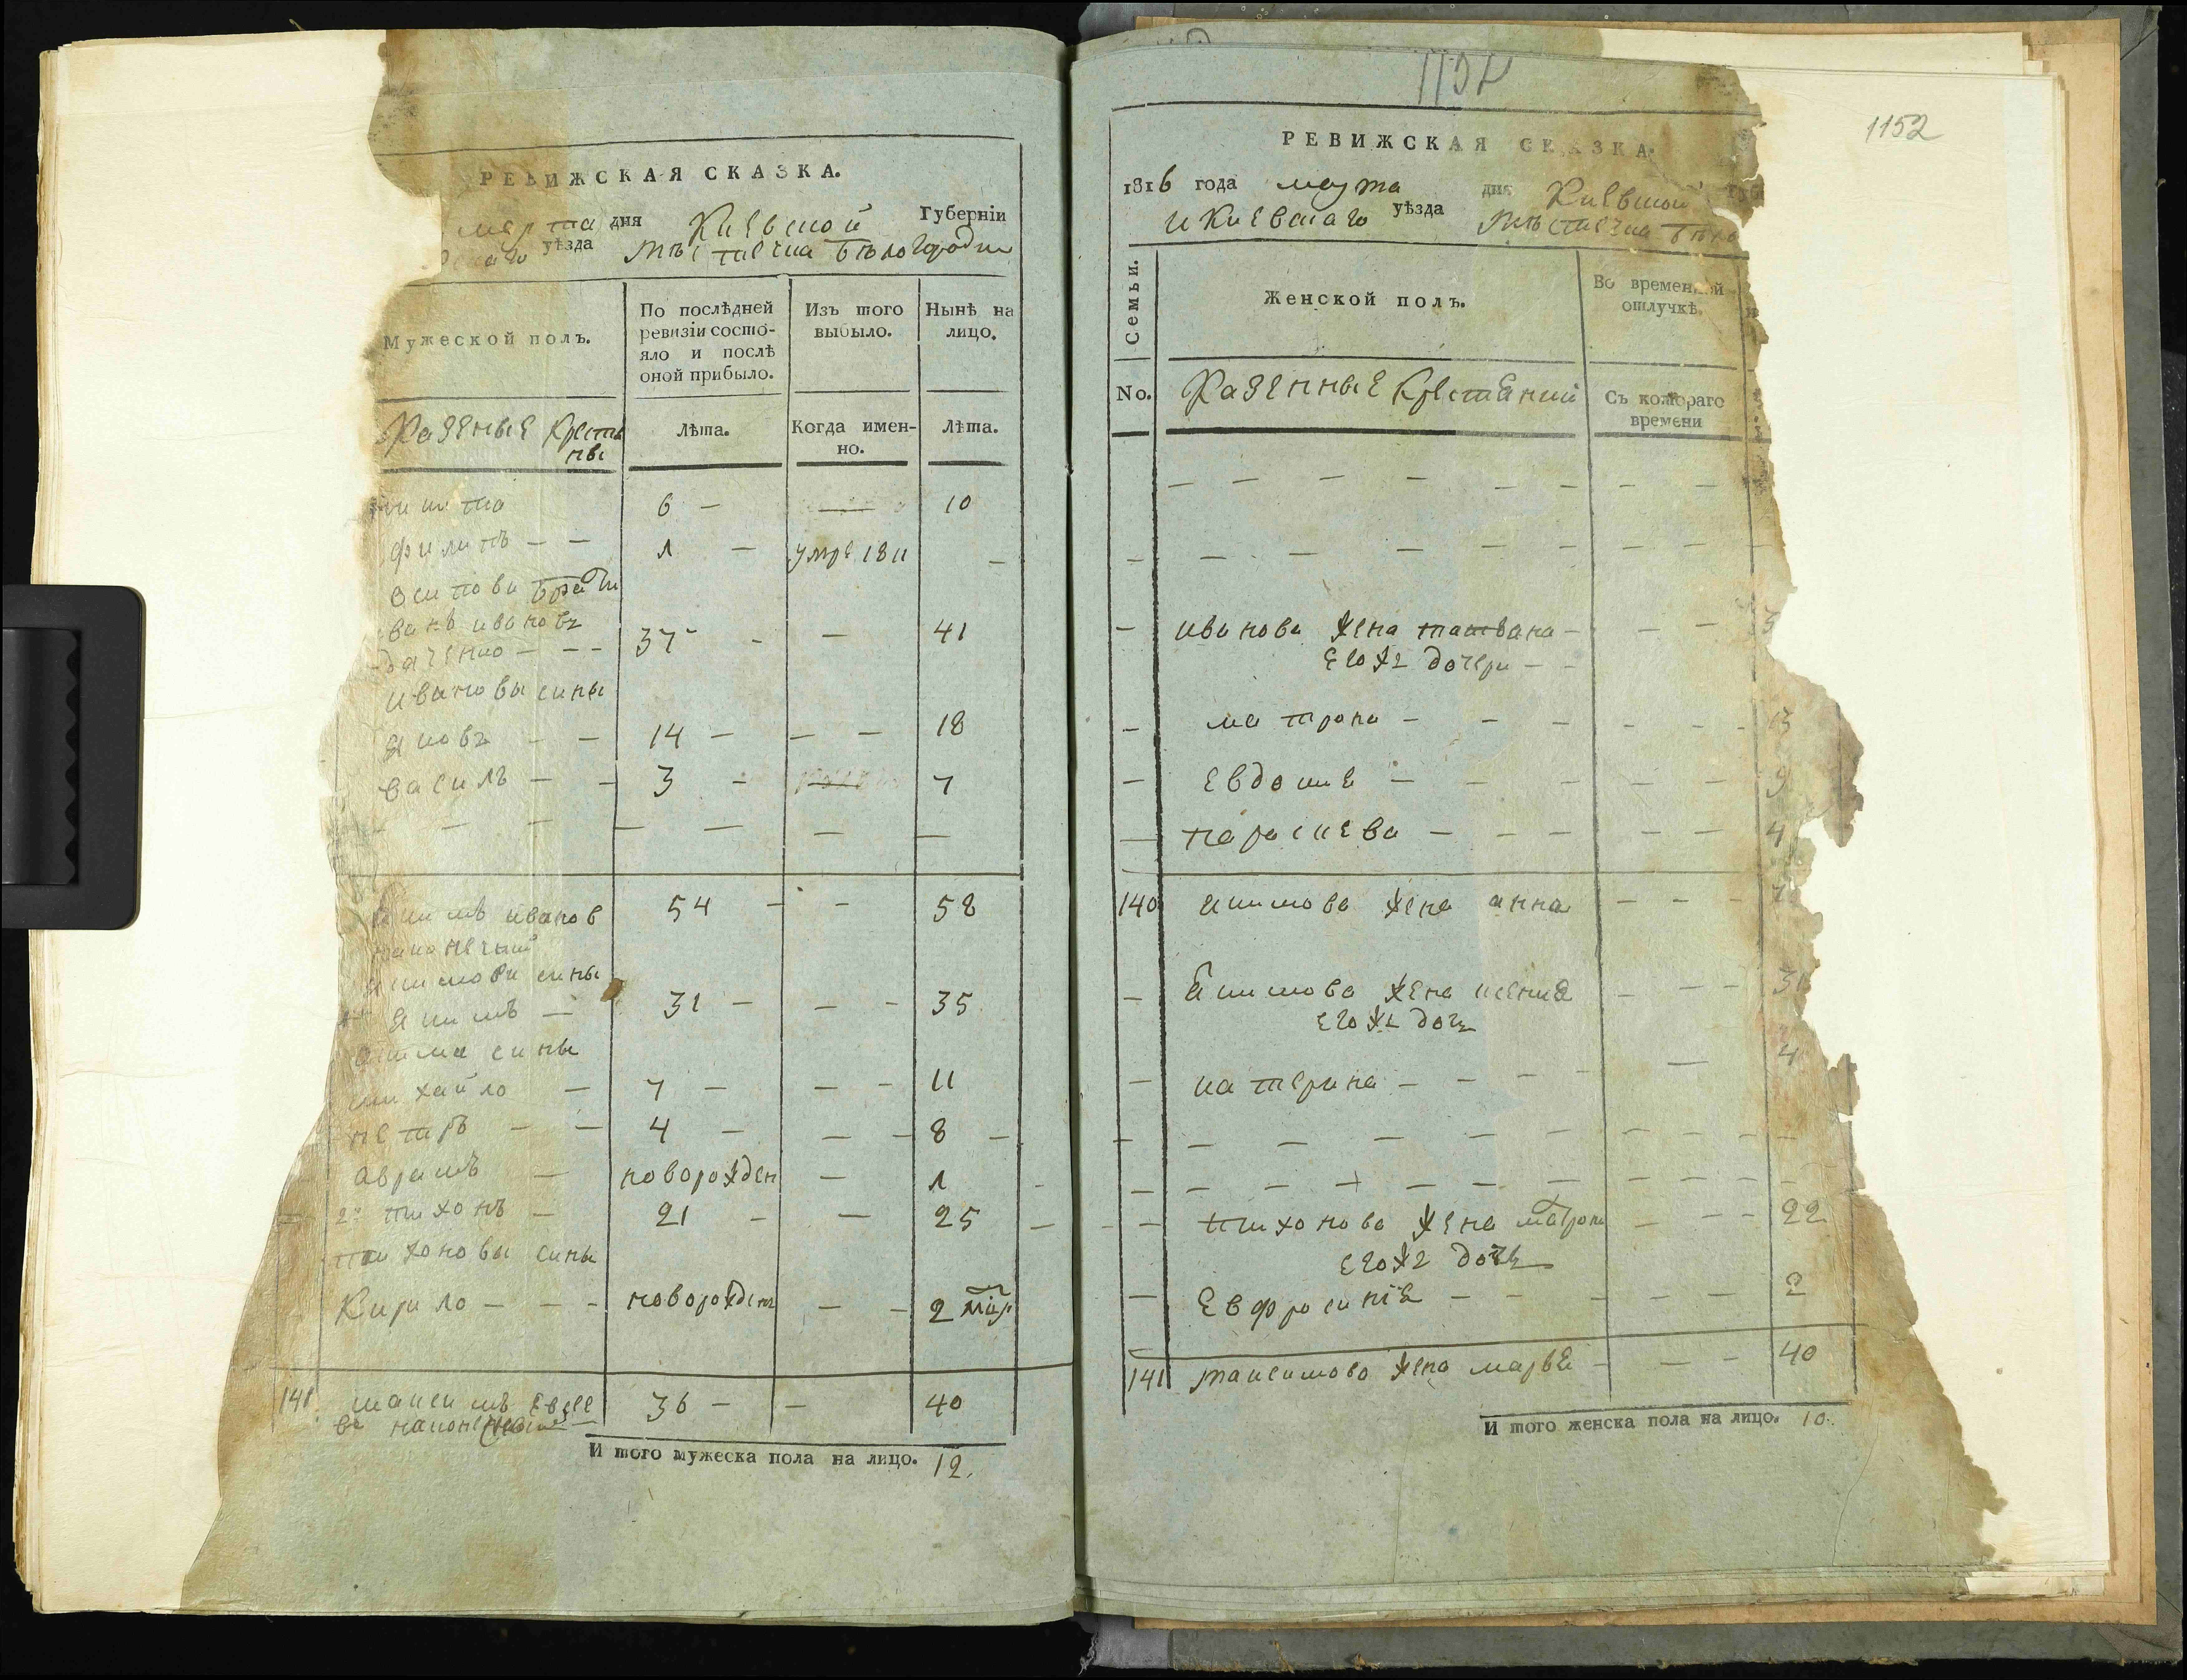 РЕВИЖСКАЯ СКАЗКА.
марта дня Киевской Губерніи
уѣзда Мѣстечка Бѣлогородки
Мужеской полъ.
По послѣдней ревизіи состояло и послѣ оной прибыло.
Изъ того выбыло.
Нынѣ на лицо.
Казенные Кресть
яны
Лѣта.
Когда именно.
Лѣта.
6 - 10
Филипъ - - 1 - умре 1811 -
Осипови брати
иванов 37 - - 41
ивановы сины
Яковъ - - 14 - - - 18
василь - - 3 - 7
Якимъ иванов 54 - - 58
Якимови сины
Якимъ - 31 - - - 35
сины
михайло - 7 - - - 11
петръ - - 4 - - - 8 -
аврамъ - новорожден - 1
2й тихонъ - 21 - - 25
тихоновы сины
Кирило - - - новорожден - - 2 мцр
141 максимъ Евсее
въ 36 - - 40
И того мужеска пола на лицо. 12.
1152
1152
РЕВИЖСКАЯ СКАЗКА.
1816 года марта дня Киевской Губ
и Киевскаго уѣзда Мѣстечка Бѣло
Семьи.
Женской полъ.
Во временной отлучкѣ.
No.
Казенные Крестянки
Съ котораго времени
- иванова жена - - -
его жъ дочери - -
- матрона - - - - - - 13
- Евдокия - - - - - - 9
- параскева - - - - - - 4
140 якимова жена анна - - -
- Якимова жена ксения - - - 31
его жъ дочъ
- катерина - - - - - 4
- тихонова жена матрона - - - 22
его жъ дочь
- Евфросиния - - - - - - 2
141 максимова жена марья - - - 40
И того женска пола на лицо. 10.